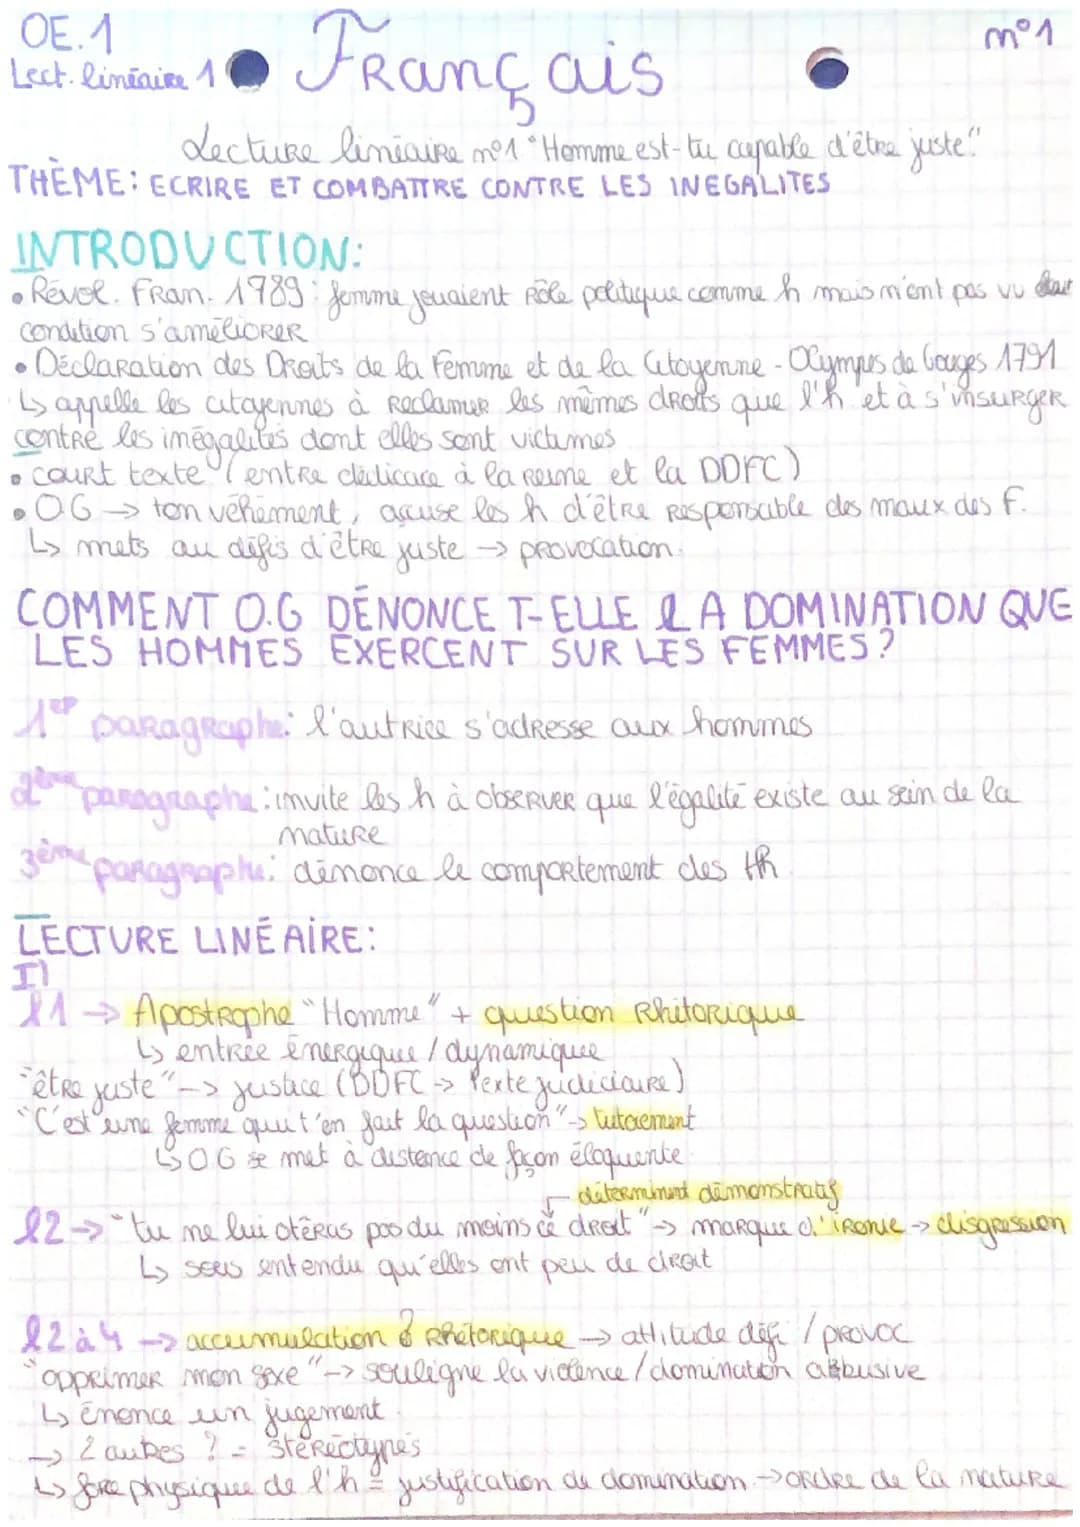 OE.1
n°1
Lect. linéaire 1
Français
Lecture linéaire n°1 "Homme est-tu capable d'être juste"
THÈME: ECRIRE ET COMBATTRE CONTRE LES INEGALITES
INTRODUCTION:
• Révol. Fran. 1789 : femme jouaient rôle politique comme h mais n'ont pas vu leur
condition s'améliorer
• Déclaration des Droits de la Femme et de la Citoyenne - Olympes de Gouges 1791
↳ appelle les citoyennes à reclamer les mêmes droits que l'h et à s'insurger
contre les inégalités dont elles sont victimes
• court texte (entre dédicace à la reine et la DDFC)
• O.G → ton véhément, accuse les h d'être responsable des maux des f.
↳ mets au défis d'être juste → provocation.
COMMENT O.G DÉNONCE T-ELLE LA DOMINATION QUE
LES HOMMES EXERCENT SUR LES FEMMES ?
1er paragraphe: l'autrice s'adresse aux hommes
2ème paragraphe: invite les h à observer que l'égalité existe au sein de la
nature
3ème paragraphe: dénonce le comportement des h
LECTURE LINÉAIRE:
I)
l1 → Apostrophe "Homme" + question rhétorique
↳ entrée énergique / dynamique
"être juste" → justice (DDFC → texte judiciaire)
"C'est une femme qui t'en fait la question" → tutoiement
↳ OG se met à distence de façon éloquente
déterminant démonstratif
l2 → "tu ne lui otéras pas du moins ce droit" → marque d'ironie → disgression
↳ sous entendu qu'elles ont peu de droit
l2 à 4 → accumulation ? rhétorique → attitude défi / provoc
"opprimer mon sexe" → souligne la violence / domination abusive
↳ énonce un jugement
→ 2 autres ? = stéréotypes
↳ force physique de l'h = justification de domination → ordre de la nature